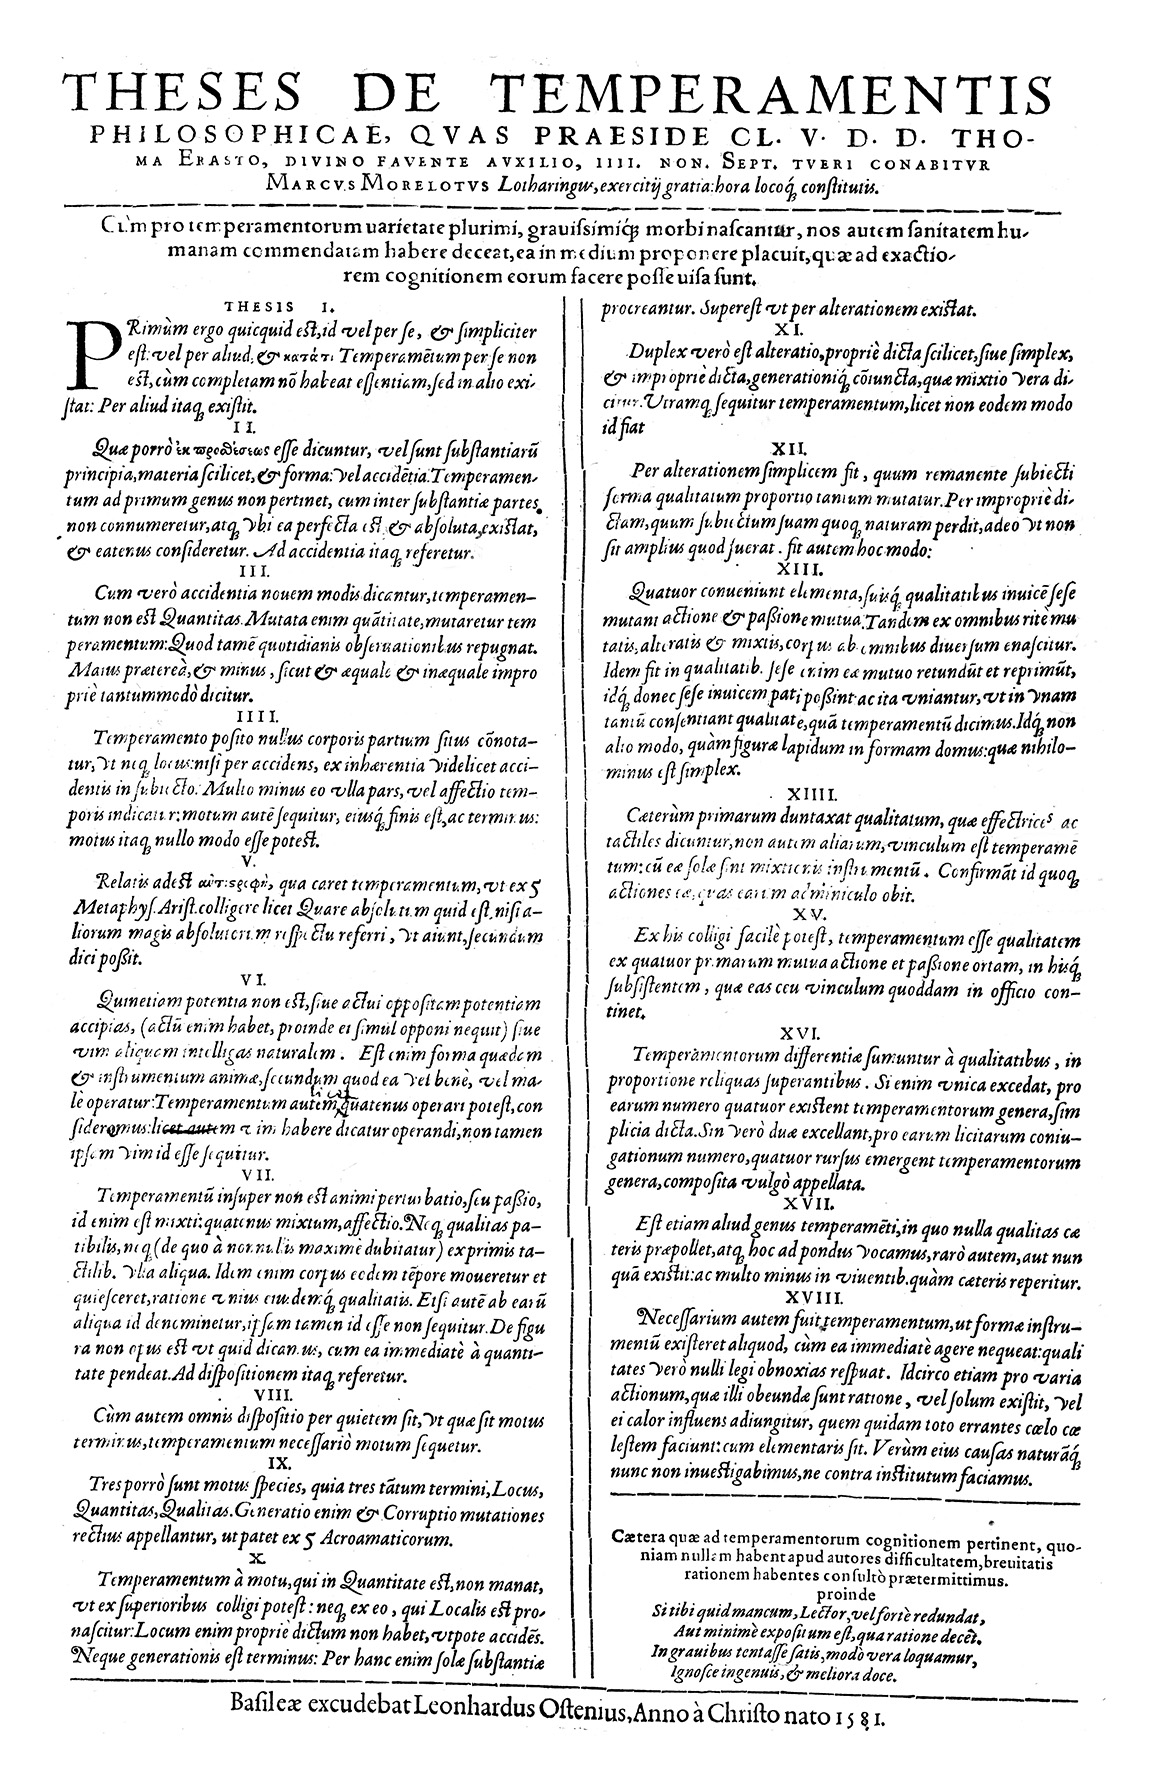 THESES DE TEMPERAMENTIS
PHILOSOPHICAE, QVAS PRAESIDE CL. V. D. D. THO-
MA ERASTO, DIVINO FAVENTE AVXILIO, IIII. NON. SEPT. TVERI CONABITVR
MARCVS MORELOTVS Lotharingus, exercitij gratia: hora locoq́ȝ constitutis.
Cùm pro temperamentorum uarietate plurimi, grauissimiq́ȝ morbi nascantur, nos autem sanitatem hu-
manam commendatam habere deceat, ea in medium proponere placuit, quæ ad exactio-
rem cognitionem eorum facere posse uisa sunt.
THESIS I.
PRimùm ergo quicquid est, id vel per se, & simpliciter
est: vel per aliud, & κατάτι Temperamẽtum per se non
est, cùm completam nõ habeat essentiam, sed in alio exi-
stat: Per aliud itaqȝ existit.
II.
Quæ porrò ἐκ προθέσεως esse dicuntur, vel sunt substantiarũ
principia, materia scilicet, & forma: vel accidẽtia. Temperamen-
tum ad primum genus non pertinet, cum inter substantiæ partes
non connumeretur, atqȝ vbi ea perfecta est & absoluta, existat,
& eatenus consideretur. Ad accidentia itaqȝ referetur.
III.
Cum verò accidentia nouem modis dicantur, temperamen-
tum non est Quantitas. Mutata enim quãtitate, mutaretur tem
peramentum: Quod tamẽ quotidianis obseruationibus repugnat.
Maius prætereà, & minus, sicut & æquale & inæquale impro
priè tantummodò dicitur.
IIII.
Temperamento posito nullius corporis partium situs cõnota-
tur, vt neqȝ locus: nisi per accidens, ex inhærentia videlicet acci-
dentis in subiecto. Multo minus eo vlla pars, vel affectio tem-
poris indicatur: motum autẽ sequitur, eiusq́ȝ finis est, ac terminus:
motus itaqȝ nullo modo esse potest.
V.
Relatis adest qua caret temperamentum, vt ex 5
Metaphys. Arist. colligere licet Quare absolutum quid est, nisi a-
liorum magis absolutorum respectu referri, vt aiunt, secundum
dici poßit.
VI.
Quinetiam potentia non est, siue actui oppositam potentiam
accipias, (actũ enim habet, proinde ei simul opponi nequit) siue
vim aliquam intelligas naturalem. Est enim forma quædam
& instrumentum animæ, secundum quod ea vel benè, vel ma-
lè operatur: Temperamentum autem quatenus operari potest, con
sideramus: licet autem vim habere dicatur operandi, non tamen
ipsam vim id esse sequitur.
VII.
Temperamentũ insuper non est animi perturbatio, seu paßio,
id enim est mixti: quatenus mixtum, affectio. Neqȝ qualitas pa-
tibilis, neqȝ (de quo à nonnullis maximè dubitatur) ex primis ta-
ctilib. vlla aliqua. Idem enim corpus eodem tẽpore moueretur et
quiesceret, ratione vnius eiusdemq́ȝ qualitatis. Etsi autẽ ab earũ
aliqua id denominetur, ipsam tamen id esse non sequitur. De figu
ra non opus est vt quid dicamus, cum ea immediatè à quanti-
tate pendeat. Ad dispositionem itaqȝ referetur.
VIII.
Cùm autem omnis dispositio per quietem sit, vt quæ sit motus
terminus, temperamentum necessariò motum sequetur.
IX.
Tres porrò sunt motus species, quia tres tãtum termini, Locus,
Quantitas, Qualitas. Generatio enim & Corruptio mutationes
rectius appellantur, ut patet ex 5 Acroamaticorum.
X.
Temperamentum à motu, qui in Quantitate est, non manat,
vt ex superioribus colligi potest: neqȝ ex eo, qui Localis est pro-
nascitur: Locum enim proprie dictum non habet, vtpote accidẽs.
Neque generationis est terminus: Per hanc enim solæ substantiæ
procreantur. Superest vt per alterationem existat.
XI.
Duplex verò est alteratio, propriè dicta scilicet, siue simplex,
& impropriè dicta, generationiq́ȝ cõiuncta, quæ mixtio vera di-
citur. Vtramqȝ sequitur temperamentum, licet non eodem modo
id fiat
XII.
Per alterationem simplicem fit, quum remanente subiecti
forma qualitatum proportio tantum mutatur. Per impropriè di-
ctam, quum subiectum suam quoqȝ naturam perdit, adeo vt non
sit amplius quod fuerat. fit autem hoc modo:
XIII.
Quatuor conueniunt elementa, suisq́ȝ qualitatibus inuicẽ sese
mutant actione & paßione mutua. Tandem ex omnibus ritè mu
tatis, alteratis & mixtis, corpus ab omnibus diuersum enascitur.
Idem fit in qualitatib. sese enim eæ mutuo retundũt et reprimũt,
idq́ȝ donec sese inuicem pati poßint ac ita vniantur, vt in vnam
tantũ consentiant qualitate, quã temperamentũ dicimus. Idqȝ non
alio modo, quàm figuræ lapidum in formam domus: quæ nihilo-
minus est simplex.
XIIII.
Cæterùm primarum duntaxat qualitatum, quæ effectrices ac
tactiles dicuntur, non autem aliarum, vinculum est temperamẽ
tum: cũ eæ solæ sint mixtionis instrumentũ. Confirmãt id quoqȝ
actiones eæ, quas earum adminiculo obit.
XV.
Ex his colligi facilè potest, temperamentum esse qualitatem
ex quatuor primarum mutua actione et paßione ortam, in hisq́ȝ
subsistentem, quæ eas ceu vinculum quoddam in officio con-
tinet.
XVI.
Temperamentorum differentiæ sumuntur à qualitatibus, in
proportione reliquas superantibus. Si enim vnica excedat, pro
earum numero quatuor existent temperamentorum genera, sim
plicia dicta. Sin verò duæ excellant, pro earum licitarum coniu-
gationum numero, quatuor rursus emergent temperamentorum
genera, composita vulgò appellata.
XVII.
Est etiam aliud genus temperamẽti, in quo nulla qualitas cæ
teris præpollet, atqȝ hoc ad pondus vocamus, rarò autem, aut nun
quã existit: ac multo minus in viuentib. quàm cæteris reperitur.
XVIII.
Necessarium autem fuit temperamentum, ut formæ instru-
mentũ existeret aliquod, cùm ea immediatè agere nequeat: quali
tates verò nulli legi obnoxias respuat. Idcirco etiam pro varia
actionum, quæ illi obeundæ sunt ratione, vel solum existit, vel
ei calor influens adiungitur, quem quidam toto errantes cœlo cœ
lestem faciunt: cum elementaris sit. Verùm eius causas naturãq́ȝ
nunc non inuestigabimus, ne contra institutum faciamus.
Cætera quæ ad temperamentorum cognitionem pertinent, quo-
niam nullam habent apud autores difficultatem, breuitatis
rationem habentes consultò prætermittimus.
proinde
Si tibi quid mancum, Lector, vel fortè redundat,
Aut minimè expositum est, qua ratione decet.
In grauibus tentasse satis, modò vera loquamur,
Ignosce ingenuis, & meliora doce.
Basileæ excudebat Leonhardus Ostenius, Anno à Christo nato 1581.